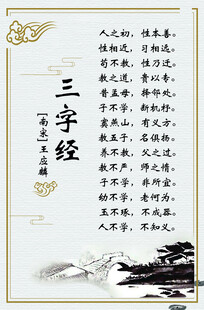 三字经
[南宋]王应麟
人之初，性本善。
性相近，习相远。
苟不教，性乃迁。
教之道，贵以专。
昔孟母，择邻处。
子不学，断机杼。
窦燕山，有义方。
教五子，名俱扬。
养不教，父之过。
教不严，师之惰。
子不学，非所宜。
幼不学，老何为。
玉不琢，不成器。
人不学，不知义。